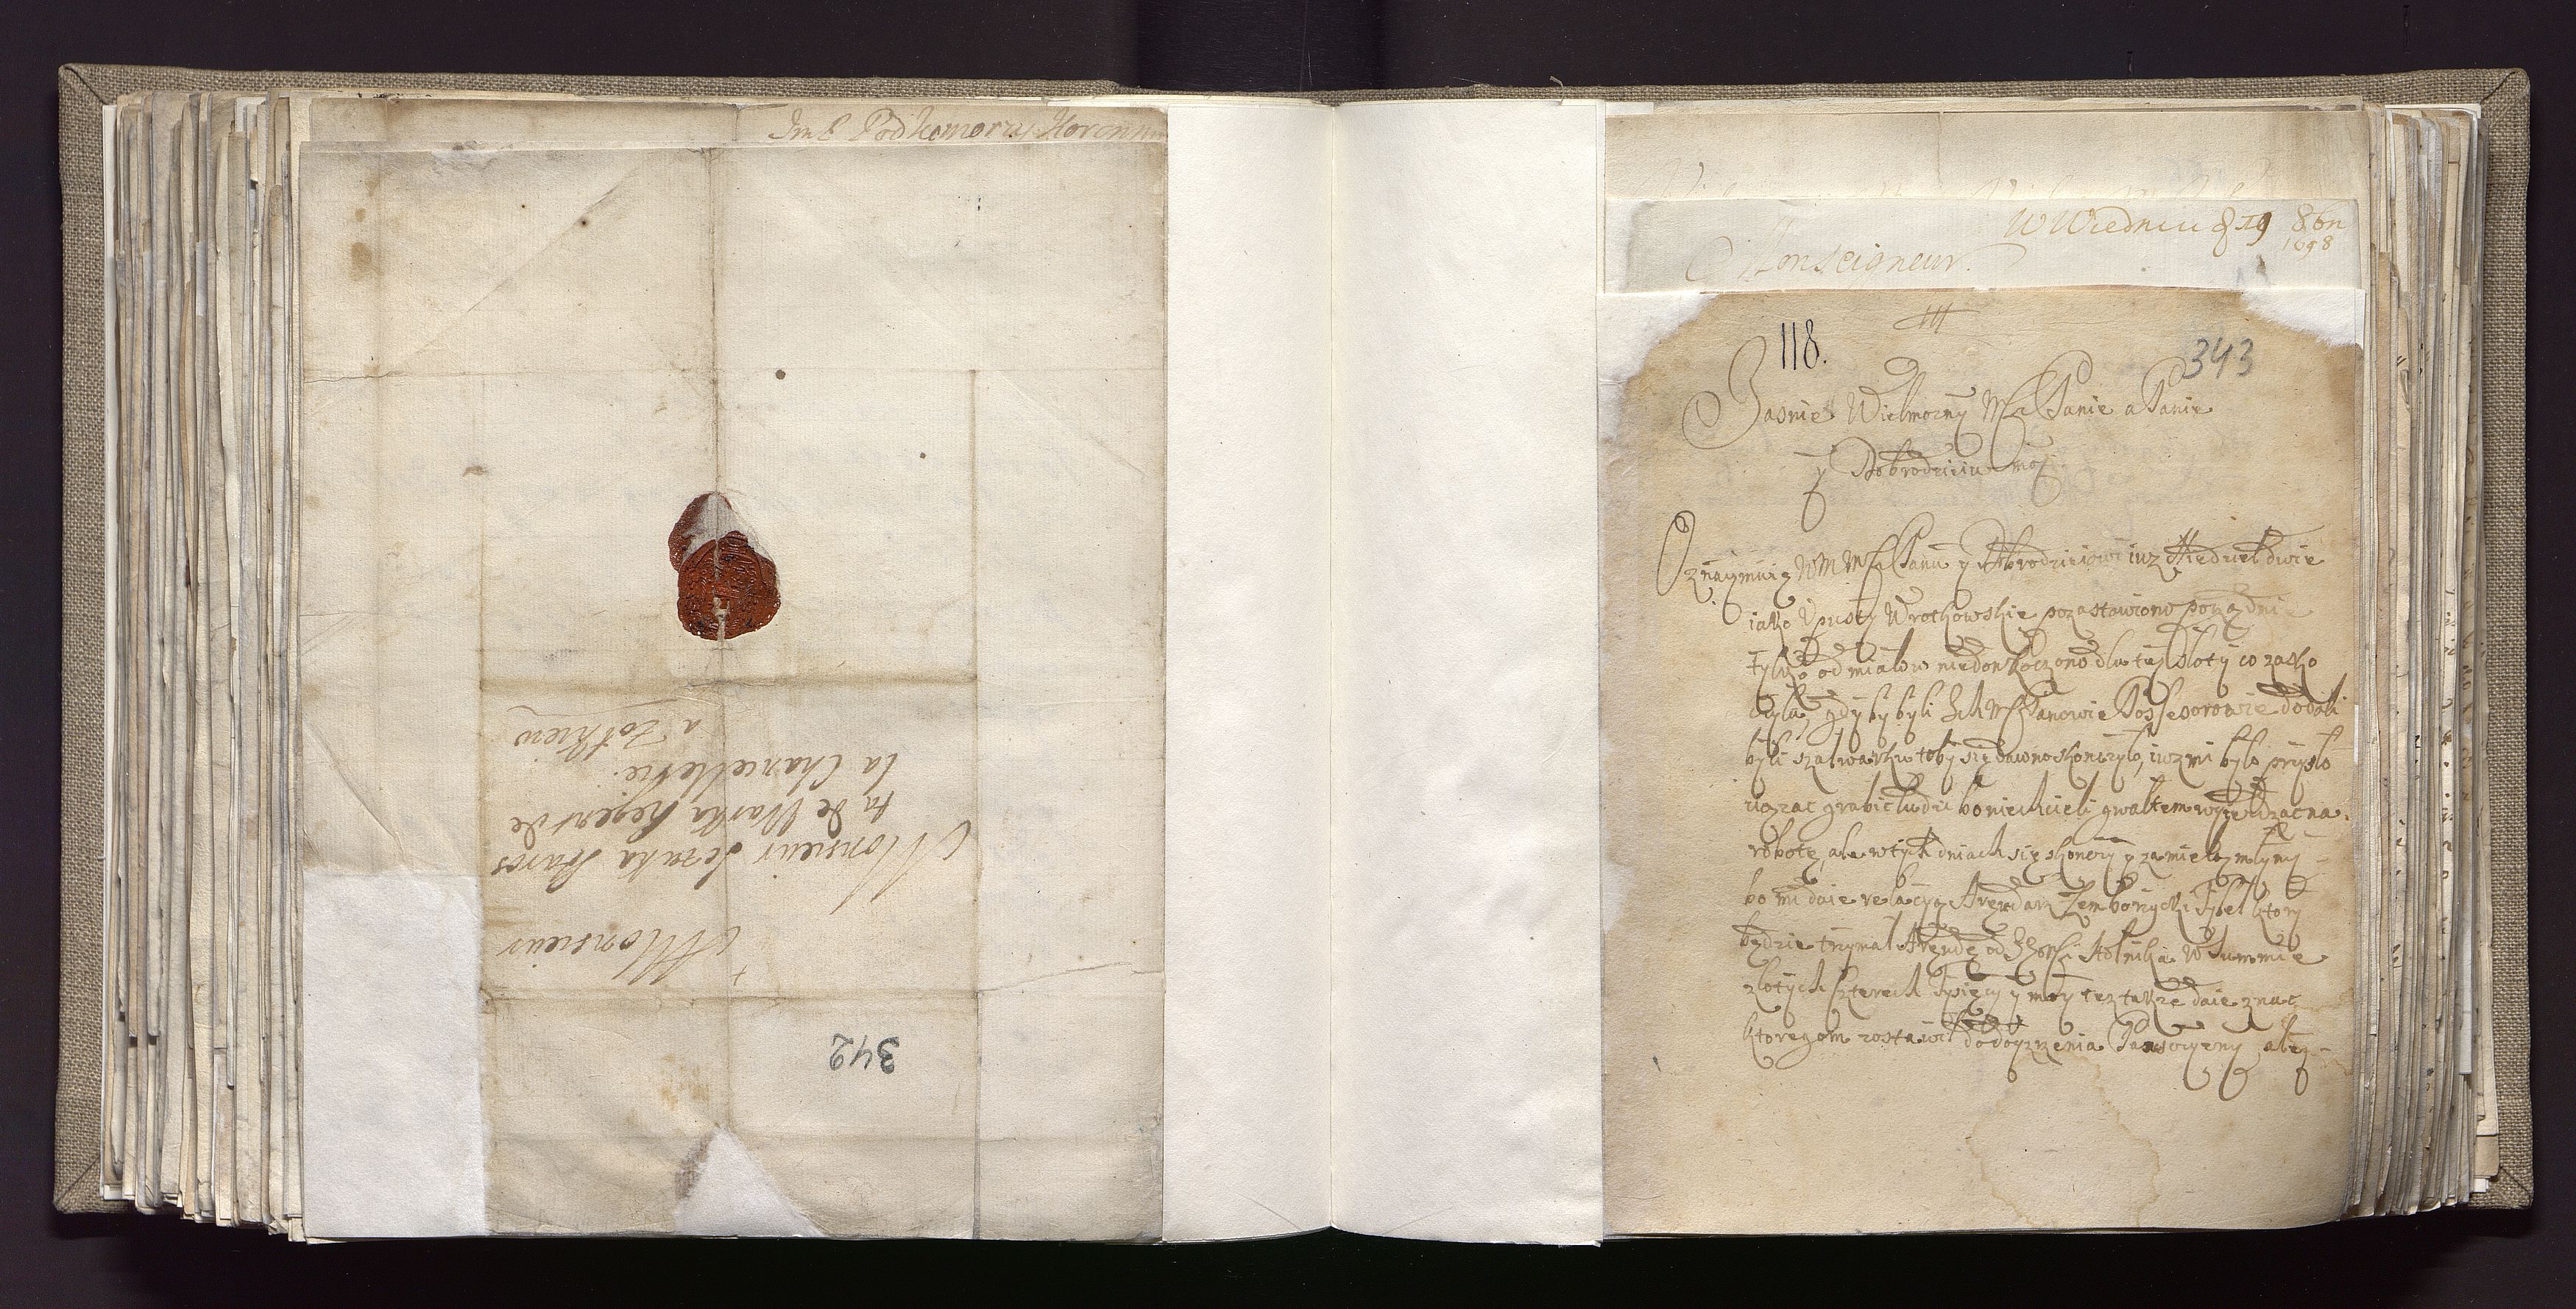 Im P Podkomorzy Koronny
342
Monsieur
Monsieur Szczuka Staros
ta de Warka Regent de
la Chancellerie.
a Zolkiew
W Wiedniu d 19 8bn
1698
Monseigneur.
118.
343
Jasnie Wielmozny Mci Panie a Panie
y Dobrodzieiu moy
Oznaymuię WM MPanu y Dobrodzieiowi iuz Niedziel dwie
iako Upusty Wrotkowskie pozastawiono porządnie
tylko od miałow niedonkoczono dla tey słoty co zasko
czyła, gdy by byli Ich Mci Panowie Possesorowie dodali
byli szarwarku toby się dawno skonczylo, iuz mi było przyszło
grabic ludzi bo niechcieli gwałtem na
robotę, ale w tych dniach się skonczy y zamielą młyny
bo mi daie relacyą Arędarz Zemborzycki ktory
będzie trzymał Arędę od Stolnika w Summie
złotych szterech Tysięcy y moy tez takze daie znac
ktoregom zostawił do doyzrzenia